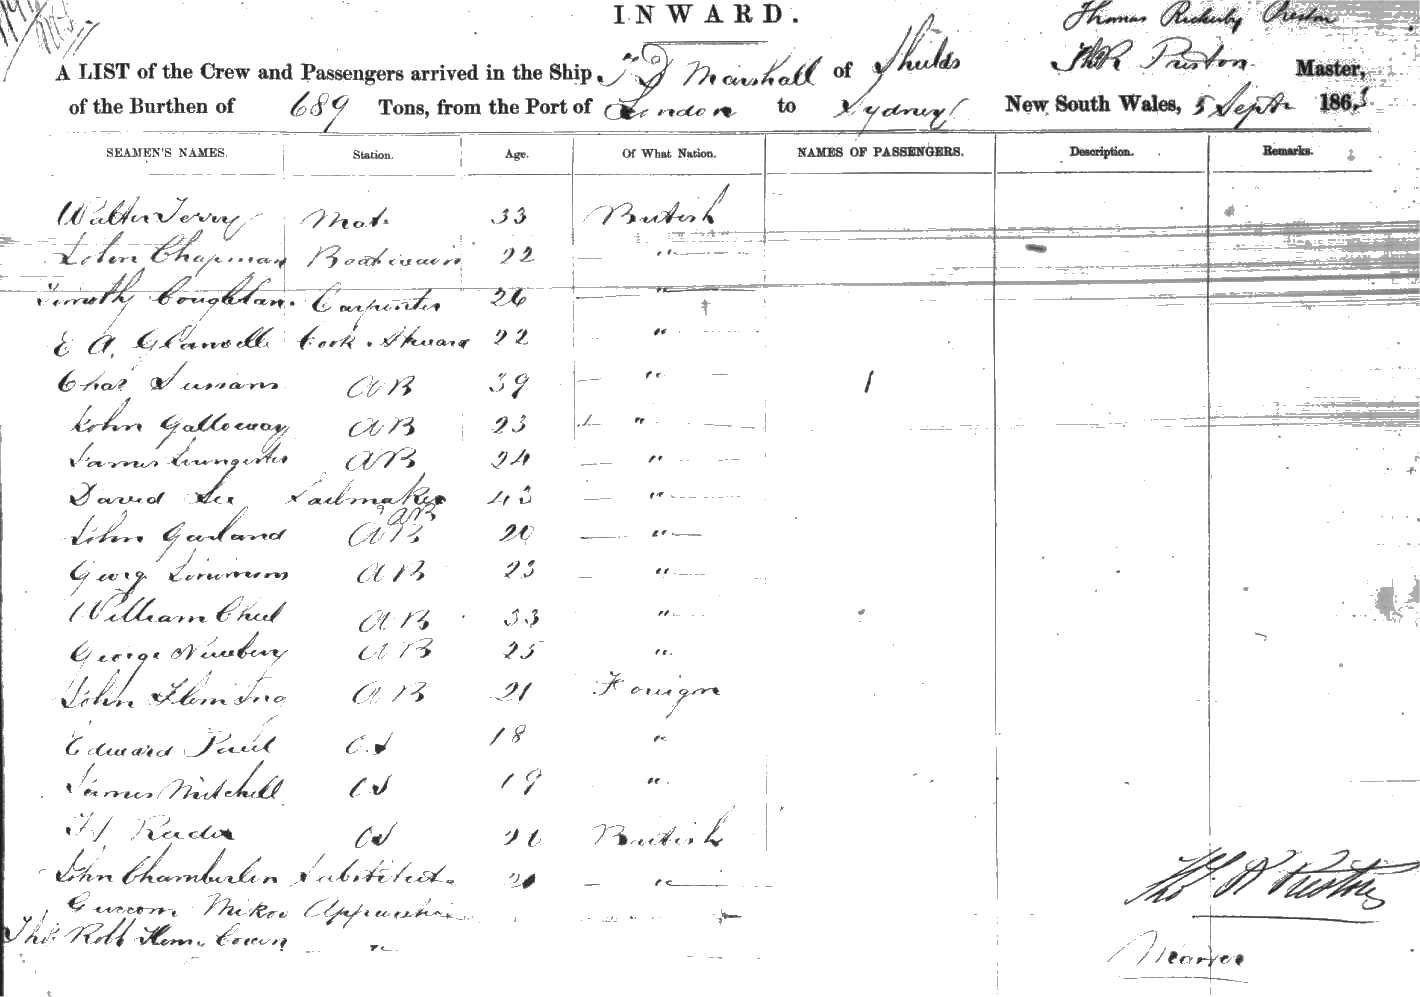 INWARD.
Thomas Rickerby Preston
A LIST of the Crew and Passengers arrived in the Ship Marshall of Shields Preston Master,
of the Burthen of 689 Tons, from the Port of London to Sydney New South Wales, 5 Septr 1863
SEAMEN'S NAMES. Station. Age. Of What Nation. NAMES OF PASSENGERS. Description. Remarks.
Walter Terry Mate 33 British
John Chapman Boatswain 22 "
Timothy Coughlan Carpenter 26 "
E A. Glanville Cook. Steward 22 "
Chas A B 39 " 1
John Galloway A B 23 "
James A B 24 "
David Lee Sailmaker 43 "
AB
John Garland A B 20 "
Georg A B 23 "
William A B 33 "
George Newbery A B 25 "
John Fleming A B 21 Foreign
Edward Paul O.S 18 "
James Mitchell OS 19 "
H OS 26 British
John Chamberlin Substitute 20 "
Apprentice
Thos Robt "
Thos R Preston
Master